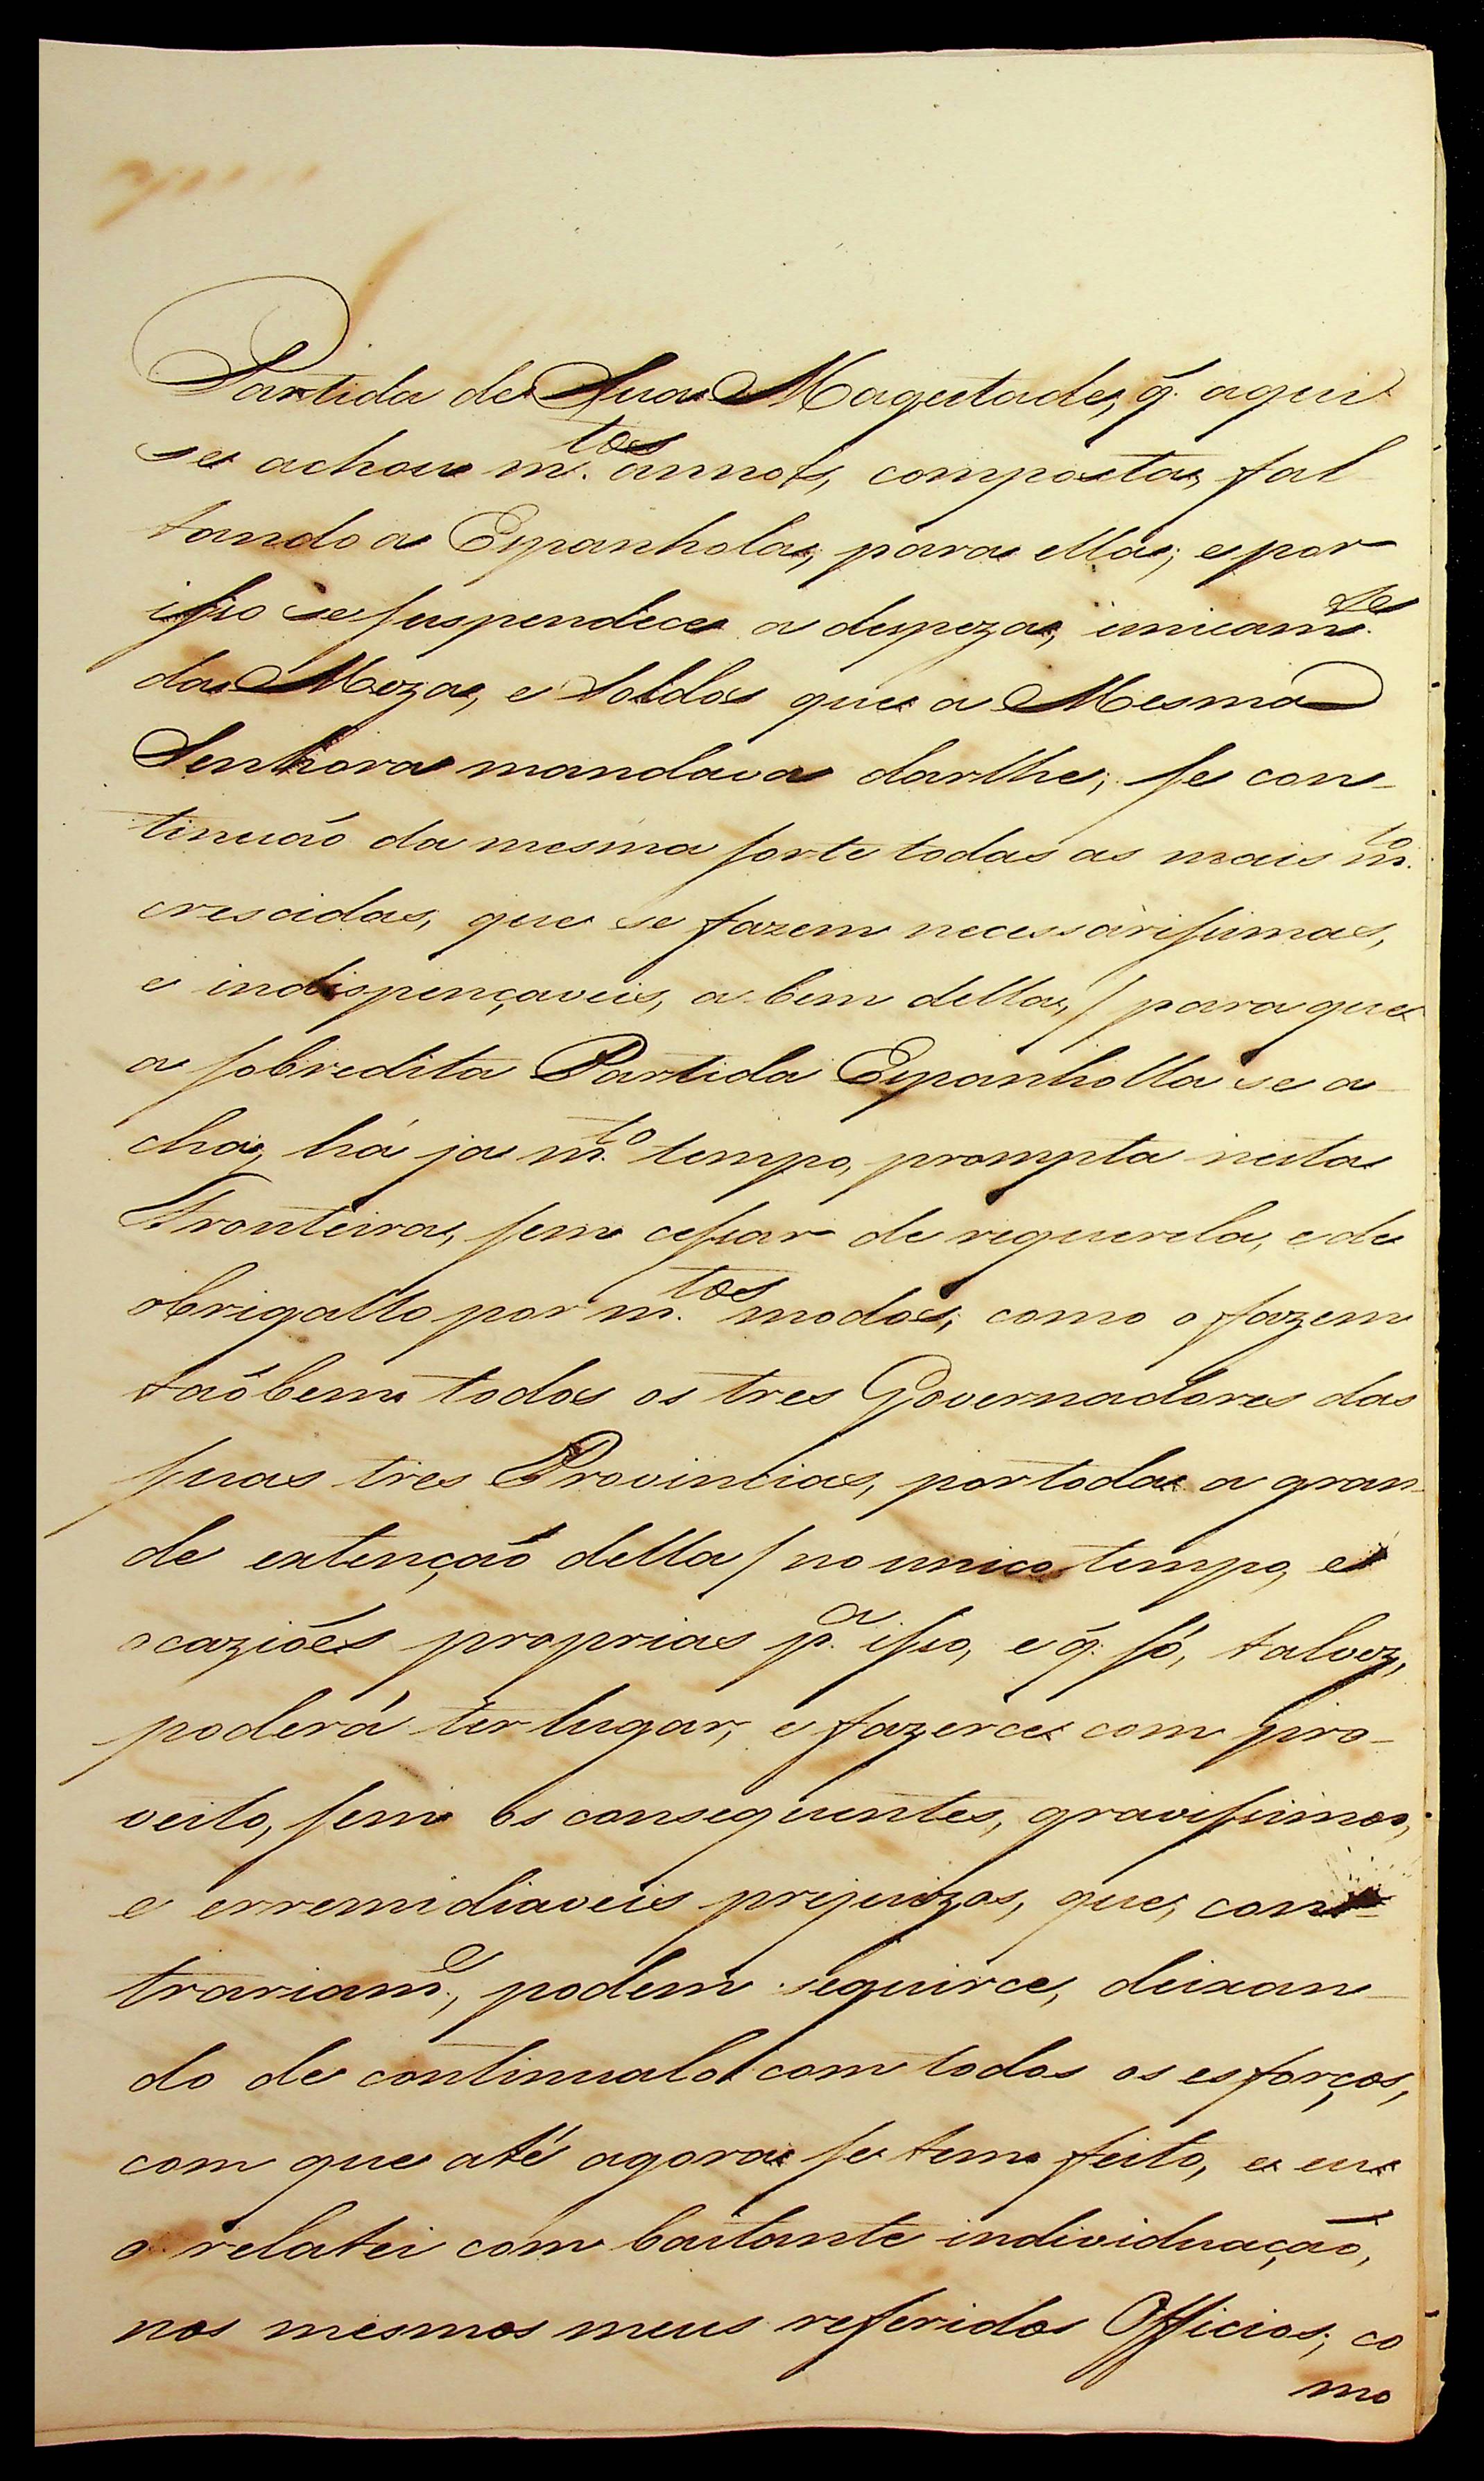 Partida de Sua Magestade, q̃. aqui
se achou m.tos annos, composta, fal
tando a Espanhola, para ella; e por
isso se suspendece a despeza, unicam.te
da Meza, e Soldos que a Mesma
Senhora mandava darlhe; se con-
tinuão da mesma sorte todas as mais m.to
crescidas, que se fazem necessarissimas,
e indispençaveis, a bem della, / para que
a sobredita Partida Espanholla se a-
cha, há ja m.to tempo, prompta nesta
Fronteira, sem cessar de requerela, e de
obrigallo por m.tos modos; como o fazem
taõbem todos os tres Governadores das
suas tres Provincias, por toda a gran-
de extençaõ della / no unico tempo, e
ocaziões proprias p.a isso, e q̃. só, talvez,
poderá ter lugar, e fazerce com pro-
veito, sem os consequentes, gravissimos,
e erremidiaveis prejuizos, que, con-
trariam.e, podem seguirce, deixan-
do de continualo com todos os esforços,
com que até agora se tem feito, e eu
o relatei com bastante individuação,
nos mesmos meus referidos Officios; co
mo